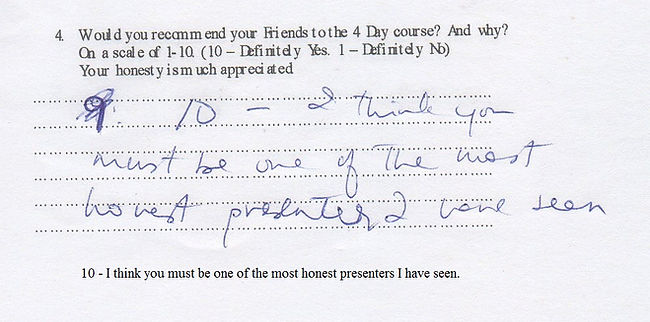 4. Would you recommend your Friends to the 4 Day course? And why?
On a scale of 1-10. (10 – Definitely Yes. 1 – Definitely No)
Your honesty is much appreciated
9. 10 - I think you
must be one of the most
honest presenters I have seen
10 - I think you must be one of the most honest presenters I have seen.